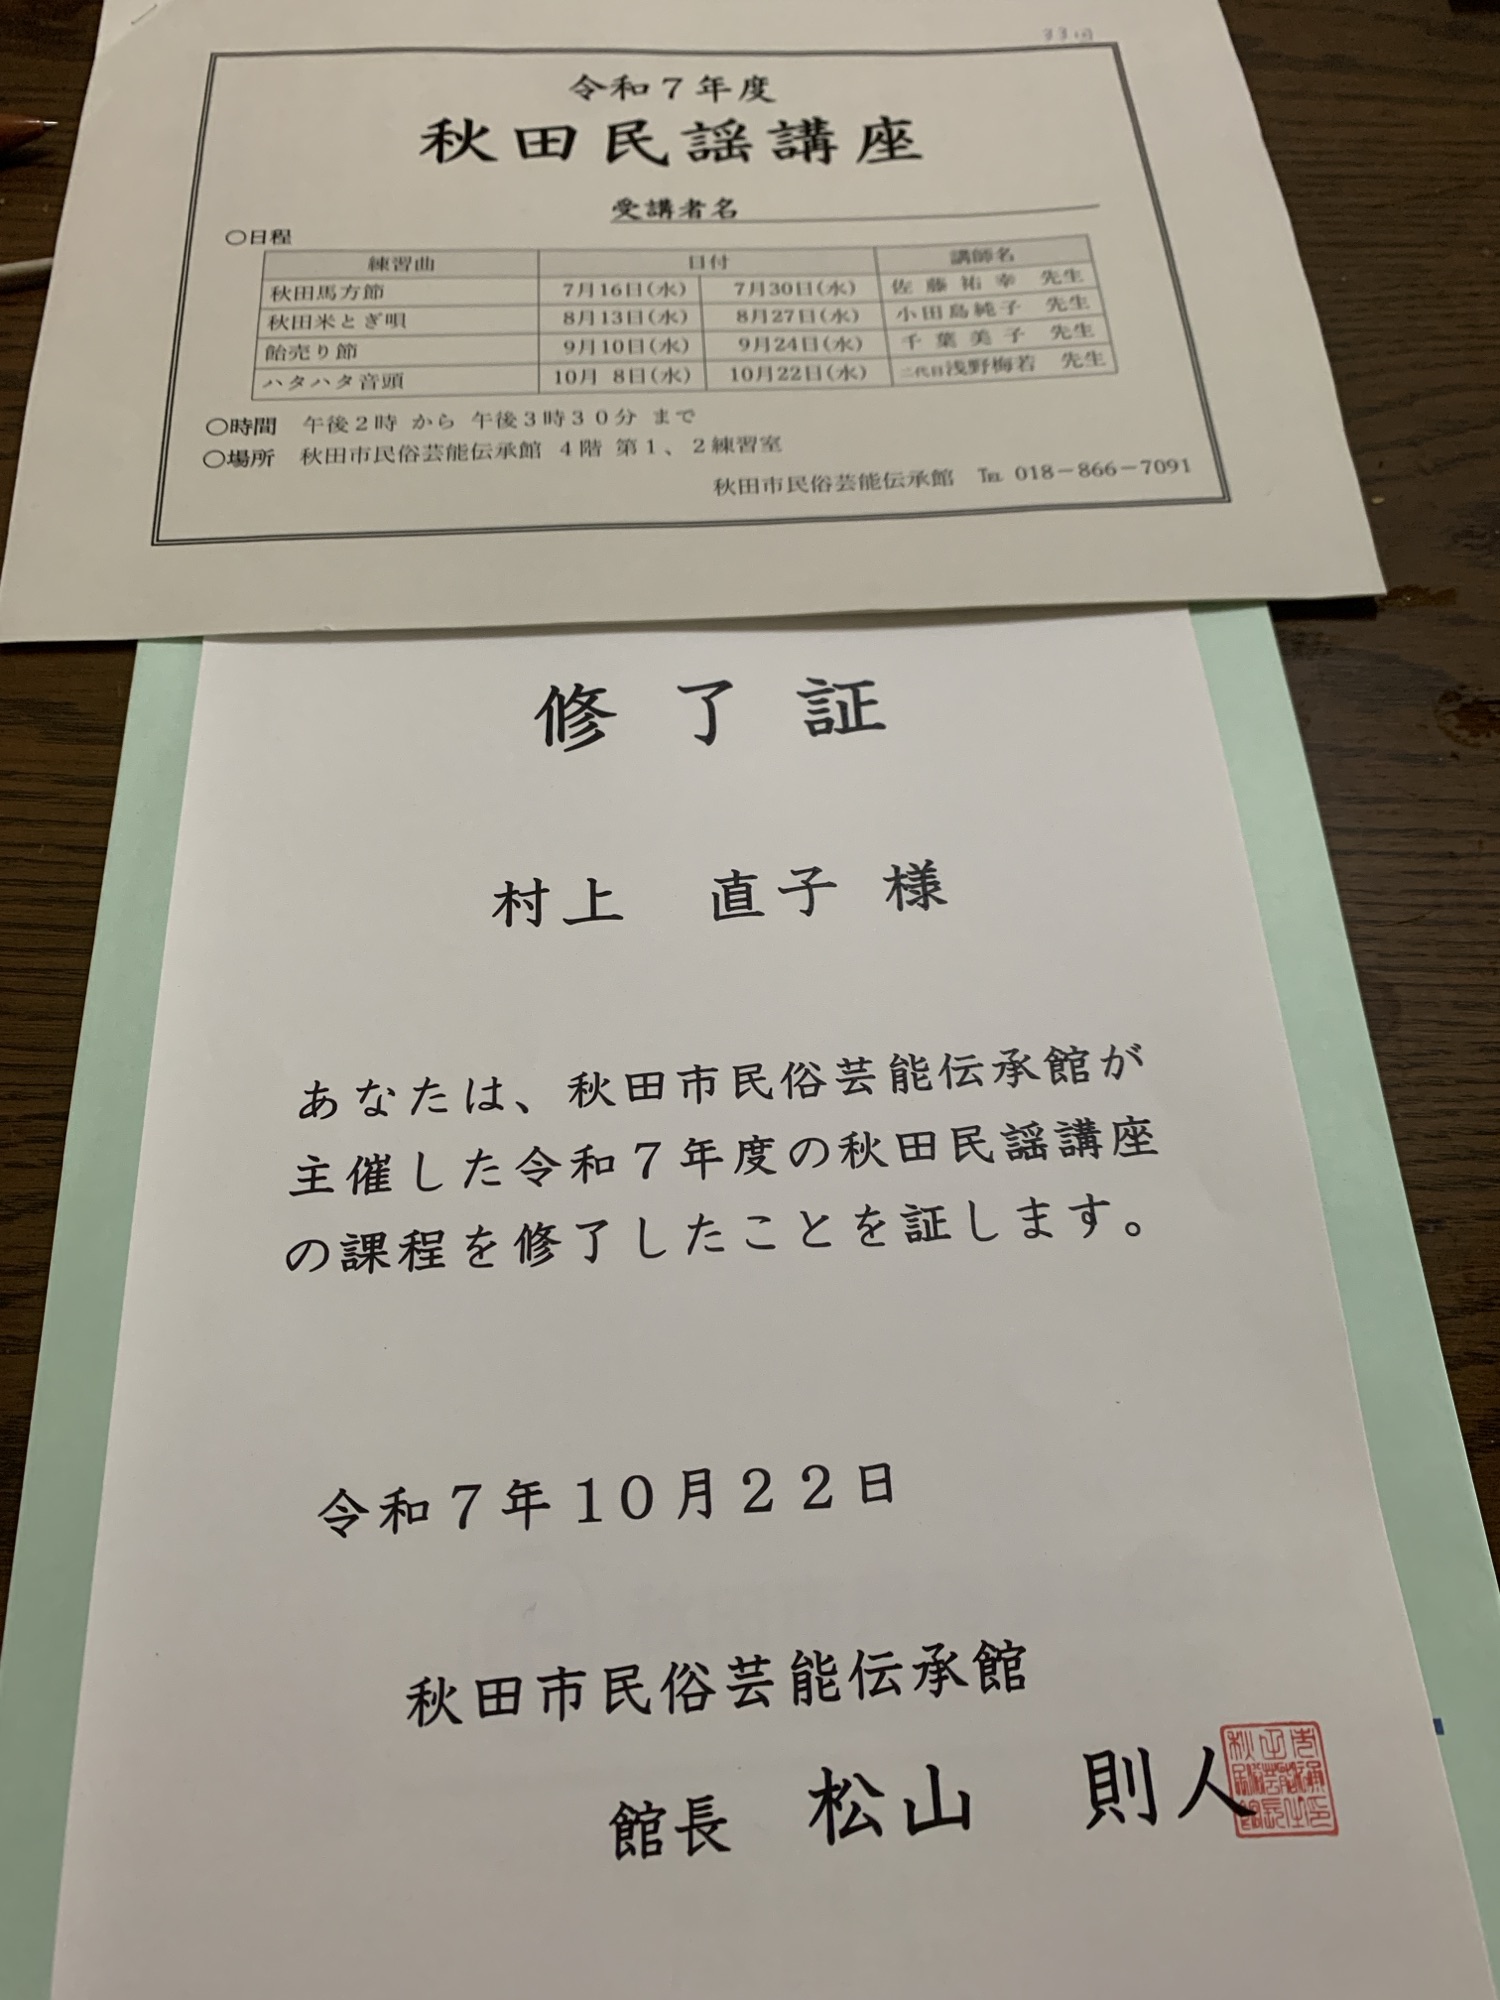 33回
令和７年度
秋田民謡講座
受講者名
○日程
練習曲 日付 講師名
秋田馬方節 7月16日(水) 7月30日(水) 佐藤祐幸 先生
秋田米とぎ唄 8月13日(水) 8月27日(水) 小田島純子 先生
飴売り節 9月10日(水) 9月24日(水) 千葉美子 先生
ハタハタ音頭 10月 8日(水) 10月22日(水) 二代目浅野梅若 先生
○時間 午後２時 から 午後３時３０分 まで
○場所 秋田市民俗芸能伝承館 ４階 第１、２練習室
秋田市民俗芸能伝承館 ℡ 018－866－7091
修了証
村上 直子 様
あなたは、秋田市民俗芸能伝承館が
主催した令和７年度の秋田民謡講座
の課程を修了したことを証します。
令和７年１０月２２日
秋田市民俗芸能伝承館
館長 松山 則人